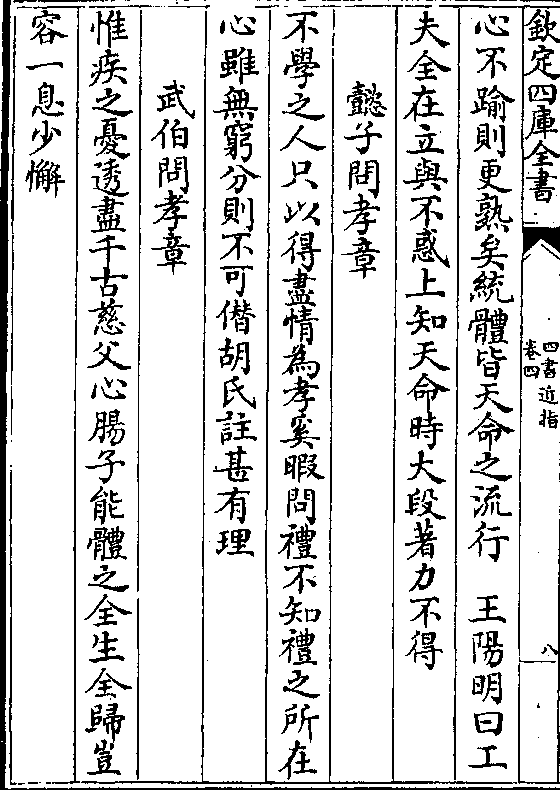 欽定四庫全書
四書近指
卷四
八
心不踰則更熟矣統體皆天命之流行　王陽明曰工
夫全在立與不惑上知天命時大段著力不得
懿子問孝章
不學之人只以得盡情為孝奚暇問禮不知禮之所在
心雖無窮分則不可僭胡氏註甚有理
武伯問孝章
惟疾之憂透盡千古慈父心腸子能體之全生全歸豈
容一息少懈